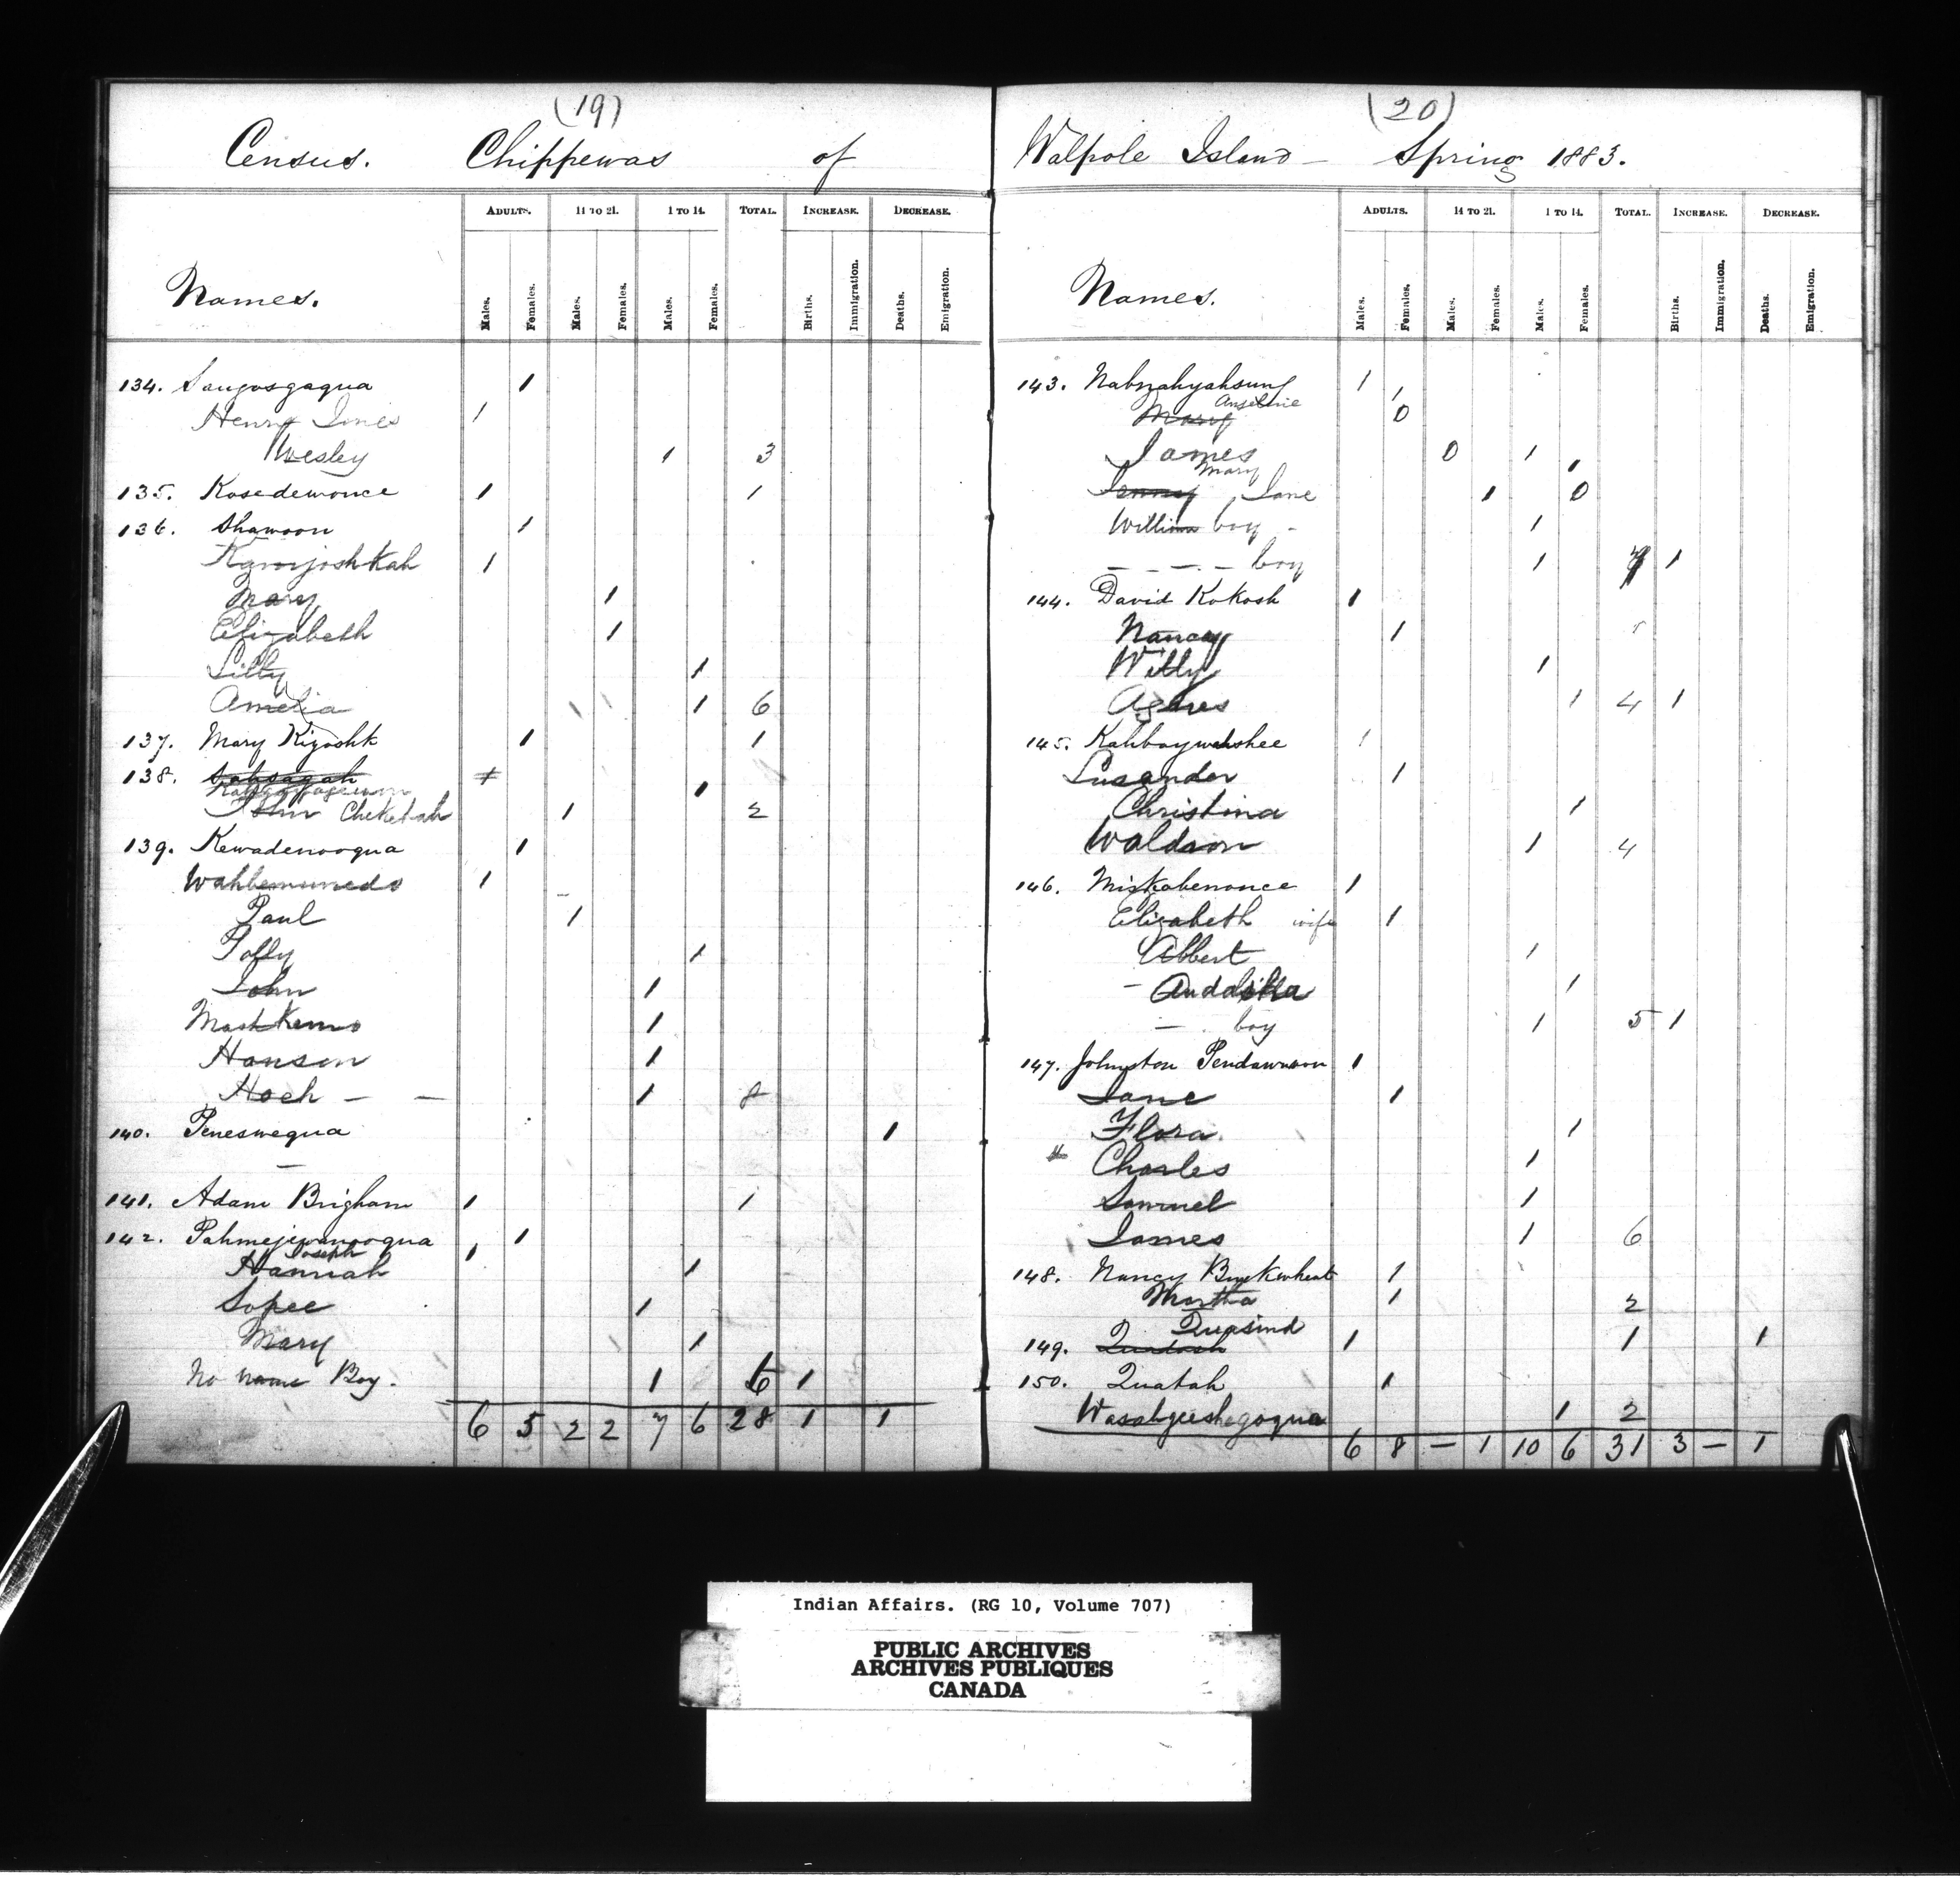 (19)
Census. Chippewas of
ADULTS. 14 TO 21. 1 TO 14. TOTAL. INCREASE. DECREASE.
Names. Males. Females. Males. Females. Males. Females. Births. Immigration. Deaths. Emigration.
134. Saugosgaqua 1
Henry Jones 1
Wesley 1 3
135. Kosedewonce 1 1
136. Shawoon 1
Kanojoshkah 1
Mary 1
Elizabeth 1
Lilly 1
Amelia 1 6
137. Mary Kizoshk 1 1
138. Sahsagah
1
John Cheketah 1 2
139. Kewadenooqua 1
Wahbemunedo 1
Paul 1
Polly 1
John 1
Mashkeno 1
Hanson 1
Hoch — — 1 8
140. Peneswequa 1
—
141. Adam Brigham 1 1
142. Pahmejewanooqua 1
Joseph 1
Hannah 1
Sopee 1
Mary 1
No name Boy. 1 6 1
6 5 2 2 7 6 28 1 1
(20)
Walpole Island — Spring 1883.
ADULTS. 14 TO 21. 1 TO 14. TOTAL. INCREASE. DECREASE.
Names. Males. Females. Males. Females. Males. Females. Births. Immigration. Deaths. Emigration.
143. Nabnahyahsung 1
Angeline 1
Mary 0
James 0 1
Mary 1
Jenny, Jane 1 0
William boy - 1
— — — — boy 1 7 1
144. David Kokosh 1
Nancy 1
Willy 1
Agnes 1 4 1
145. Kahbaywahshee 1
Lusander 1
Christina 1
Waldron 1 4
146. Miskabenonce 1
Elizabeth wife 1
Albert 1
— 1
— boy 1 5 1
147. Johnston Pendawason 1
Jane 1
Flora 1
Charles 1
Samuel 1
James 1 6
148. Nancy Buckwheat 1
Martha 1 2
Quasind
149. 1 1 1
150. Quatah 1
Wasahgeeshegoqua 1 2
6 8 — 1 10 6 31 3 — 1
Indian Affairs. (RG 10, Volume 707)
PUBLIC ARCHIVES
ARCHIVES PUBLIQUES
CANADA